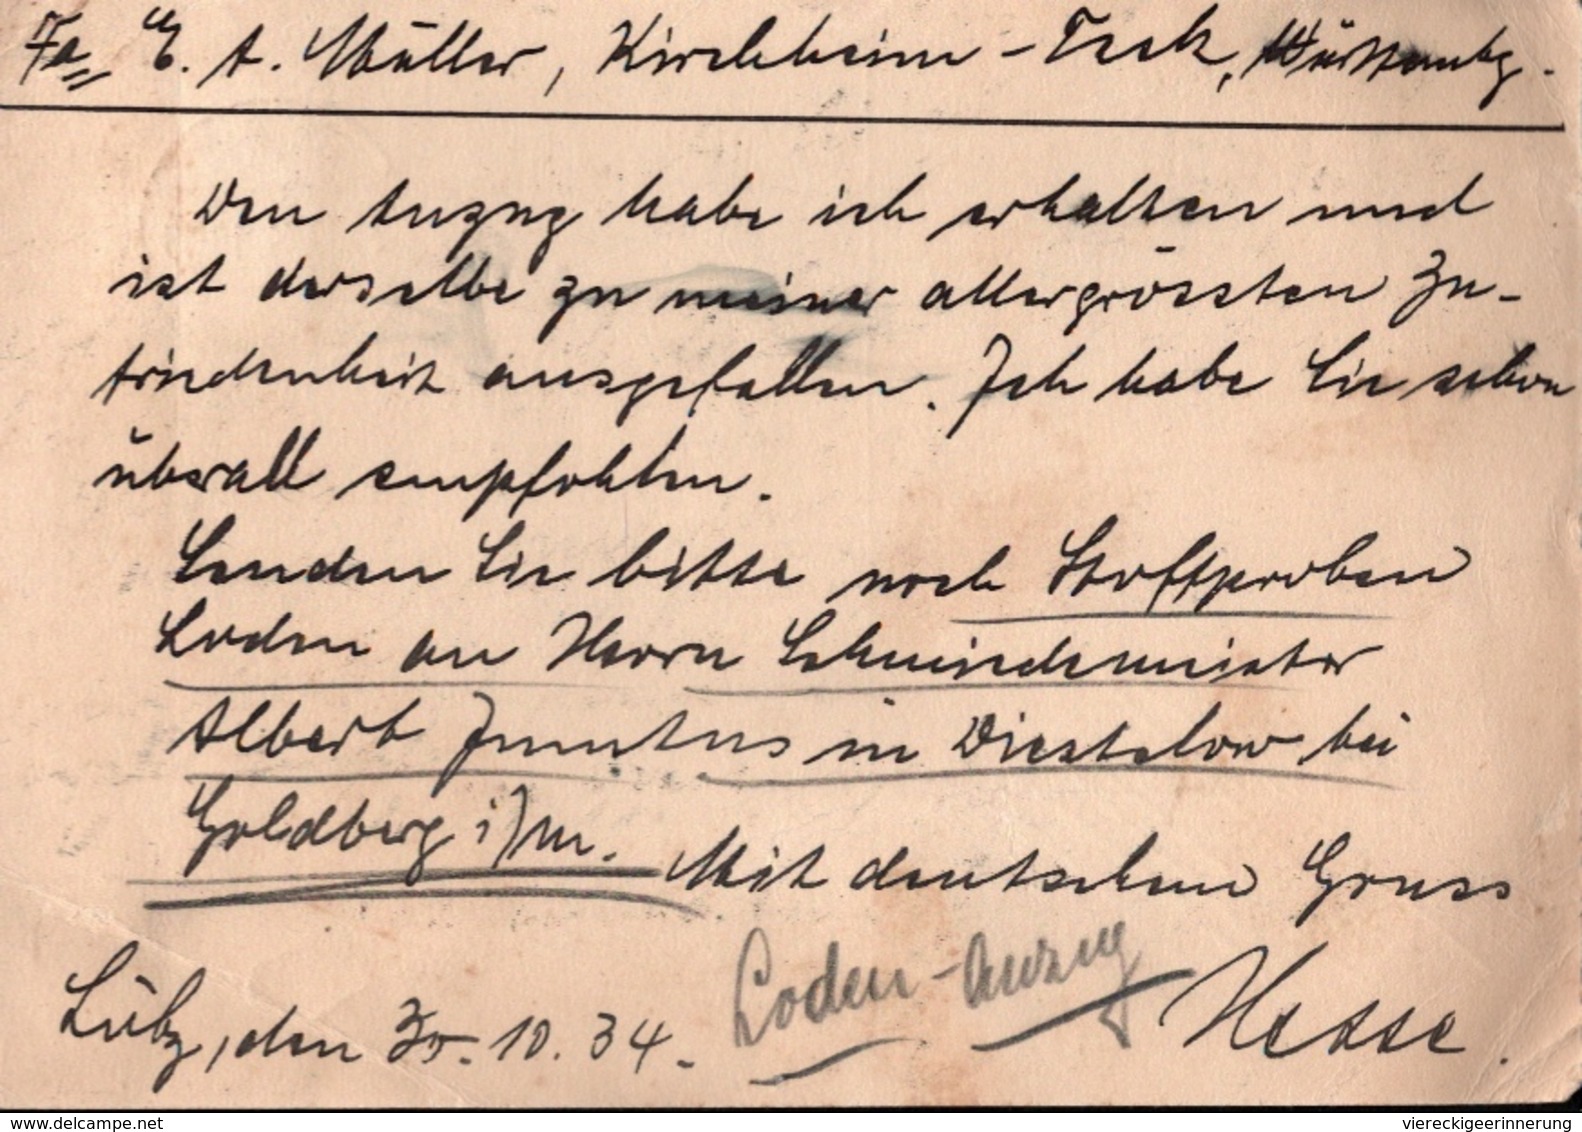 Fa E. A. Müller, Kirchheim-Teck, Württembg.
Den Anzug habe ich erhalten und
ist derselbe zu meiner allergrössten Zu-
friedenheit ausgefallen. Ich habe Sie schon
überall empfohlen.
Senden Sie bitte noch Stoffproben
Loden an Herrn Schneidermeister
Albert in Diestelow bei
Goldberg i/M. Mit deutschem Gruss
Loden-Anzug Hesse.
Lübz, den 30.10.34.
delcampe.net
viereckigeerinnerung